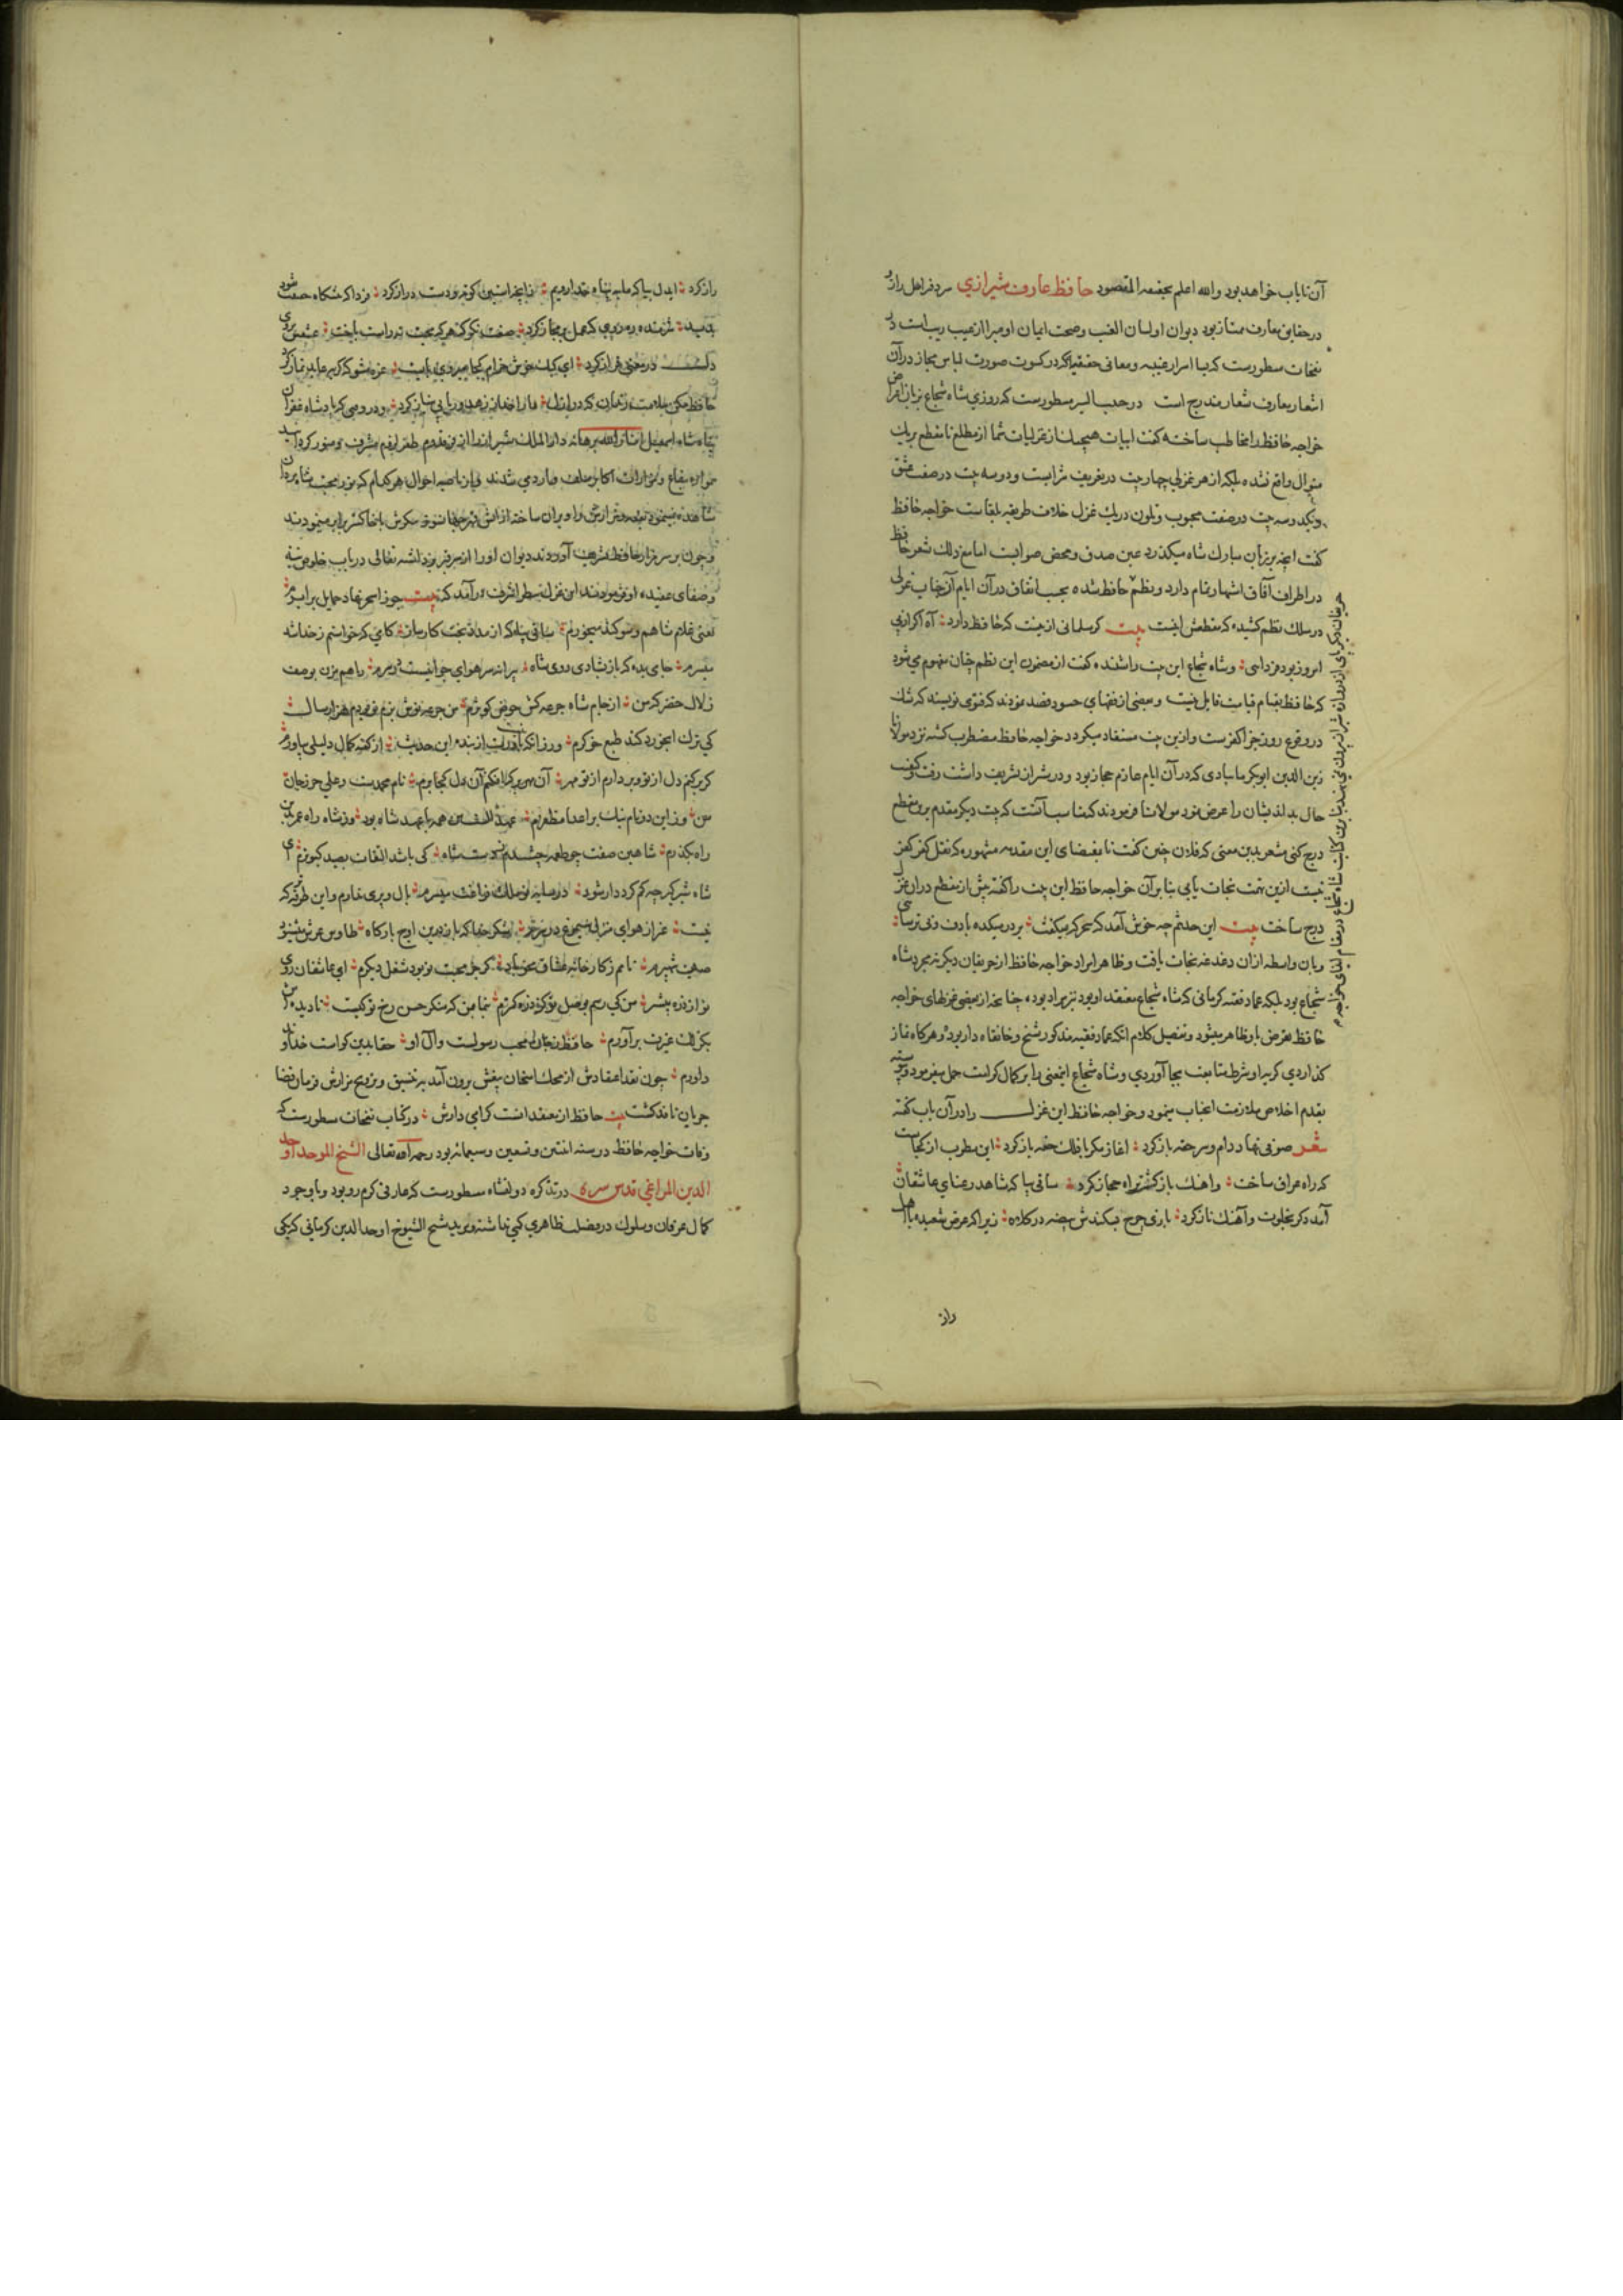 آن نایاب خواهد بود والله اعلم بحقیقه المقصود حافظ عارف شیرازی سر دفتر اهل راز و
در حقایق معارف ممتاز بود دیوان او لسان الغیب وصحت ایمان او مبرا از عیب ریب است در
نفحات مسطورست که بسا اسرار غیبیه ومعانی حقیقیه که در کسوت صورت لباس مجاز در آن
اشعار معارف شعار مندرج است در حبیب السیر مسطورست که روزی شاه شجاع بزبان اعتراض
خواجه حافظ را مخاطب ساخته کفت ابیات هیچیک از غزلیات شما از مطلع تا مقطع بر یک
منوال واقع نشده بلکه از هر غزلی چهار بیت در تعریف شرابست ودو سه بیت در صفت عشق
ویکدو سه بیت در صفت محبوب وتلون در یک غزل خلاف طریقه بلغاست خواجه حافظ
کفت انچه بر زبان مبارک شاه میکذرد عین صدق ومحض صوابست اما مع ذلک شعر حافظ
در اطراف آفاق اشتهار تمام دارد ونظم حافظ شده بحسب اتفاق در آن ایام آن جناب غزلی
در سلک نظم کشیده که مقطعش اینست بیت کر مسلمانی ازینست که حافظ دارد آه اکر از پی
امروز بود فردائی وشاه شجاع این بیت را شنیده کفت از مضمون این نظم چنان مفهوم می شود
که حافظ بقیام قیامت قایل نیست وبعضی از فقهای حسود قصد نمودند که فتوی نویسند که شک
در وقوع روز جزا کفرست وازین بیت مستفاد میکردد خواجه حافظ مضطرب کشته نزد مولانا
زین الدین ابوبکر تایبادی که در آن ایام عازم حجاز بود ودر شیراز تشریف داشت رفت وکیفیت
حال بد اندیشان را عرض نمود مولانا فرمودند که مناسب آنست که بیت دیکر مقدم برین مقطع
درج کنی مشعر بدین معنی که فلان چنین کفت تا بمقتضای این مقدمه مشهوره که نقل کفر کفر
نیست ازین تهمت نجات یابی بنا بر آن خواجه حافظ این بیت را کفته پیش از مقطع در ان غزل
درج ساخت بیت این حدیثم چه خوش آمد که سحرکه میکفت بر در میکده با دف ونی ترسائی
وبان واسطه ازان دغدغه نجات یافت وظاهر ایراد خواجه حافظ از حریفان دیکر نه مجرد شاه
شجاع بود بلکه عماد فقیه کرمانی که شاه شجاع معتقد او بود نیز مراد بوده چنانچه از بعضی غزلهای خواجه
حافظ تعرض باو ظاهر میشود وتفصیل کلام انکه عماد فقیه مذکور شیخ وخانقاه دار بود وهرکاه نماز
کذاردی کربه او شرط متابعت بجا آوردی وشاه شجاع اینمعنی را بر کمال کرامت حمل میفرمود
بقدم اخلاص ملازمت اعتاب مینمود وخواجه حافظ این غزل را در آن باب کفته
شعر صوفی نهاد دام وسر حقه باز کرد اغاز مکر با فلک حقه باز کرد این مطرب از کجاست
که راه عراق ساخت واهنک بازکشت براه حجاز کرد ساقی بیا که شاهد رعنای عاشقان
آمد دکر بجلوت وآهنک ناز کرد بازی چرخ بشکندش بیضه در کلاه زیرا که عرض شعبده با اهل
راز
راز کرد ایدل بیا که ما به پناه خدا رویم زانچه استین کوته ودست دراز کرد فردا که پیشکاه حقیقت شود
پدید شرمنده ره روی که عمل بر مجاز کرد صنعت مکن که هر که محبت نه راست باخت عشقش بروی
دلش در معنی فراز کرد ای کبک خوش خرام کجا میروی بایست غره مشو که کربه عابد نماز کرد
حافظ مکن ملامت رندان که در ازل ما را خدا ز زهد وریا بی نیاز کرد ودر وقتی که پادشاه غفران
پناه شاه اسمعیل انار الله برهانه دار الملک شیراز را
وچون بر سر مزار حافظ تشریف آوردند دیوان او را از سر قبر برداشته تفائلی در باب خلوص نیة
وصفای عقیده او فرمودند این غزل بنظر اشرف در آمد که بیت جوزا سحر نهاد حمایل برابرم
یعنی غلام شاهم وسوکند میخورم ساقی بیا که از مدد بخت کارساز کامی که خواستم ز خدا شد
میسرم جامی بده که باز بشادی روی شاه پیرانه سر هوای جوانیست در سرم راهم مزن بوصف
زلال خضر که من از جام شاه جرعه کش حوض کوثرم من جرعه نوش بزم تو بودم هزار سال
کی ترک ابخورد کند طبع خوکرم ور زانکه باورت از بنده این حدیث از کفته کمال دلیلی بیاورم
کر بر کنم دل از تو وبردارم از تو مهر آن مهر بر که افکنم آن دل کجا برم نام محمدست وعلی حرز جان
من وز این دو نام نیک بر اعدا مظفرم عهد الست من همه با عهد شاه بود وز شاه راه عمر بدین
راه بکذرم شاهین صفت چو طعمه چشیدم ز دست شاه کی باشد التفات بصید کبوترم ای
شاه شیر کیر چه کم کردد ار شود در سایه تو ملک فراغت میسرم بال وپری ندارم واین طرفه که
نیست غیر از هوای منزل سیمرغ در سرم شکر خدا که باز درین اوج بارکاه طاوس عرش میشنود
صیت شهپرم نامم ز کارخانه عشاق محو باد کر جز محبت تو بود شغل دیکرم ای عاشقان روی
تو از ذره بیشتر من کی رسم بوصل تو کز ذره کمترم بنما بمن که منکر حسن رخ تو کیست تا دیده اش
بکزلک غیرت برآورم حافظ ز جان محب رسولست وآل او حقا بدین کواست خداوند
داورم چون نقد اعتقادش از محک امتحان بیغش برون آمد به تنسیق وترویح مزارش فرمان قضا
جریان نافذ کشت بیت حافظ از معتقدانست کرامی دارش در کتاب نفحات مسطورست که
وفات خواجه حافظ در سنه اثنتین وتسعین وسبعمائه بود رحمه الله تعالی الشیخ الموحد اوحد
الدین المراغی قدس سره در تذکره دولتشاه مسطورست که عارفی کرم رو بود وبا وجود
کمال عرفان وسلوک در فضیلت ظاهری کمی نداشته ومرید شیخ الشیوخ اوحد الدین کرمانی که یکی